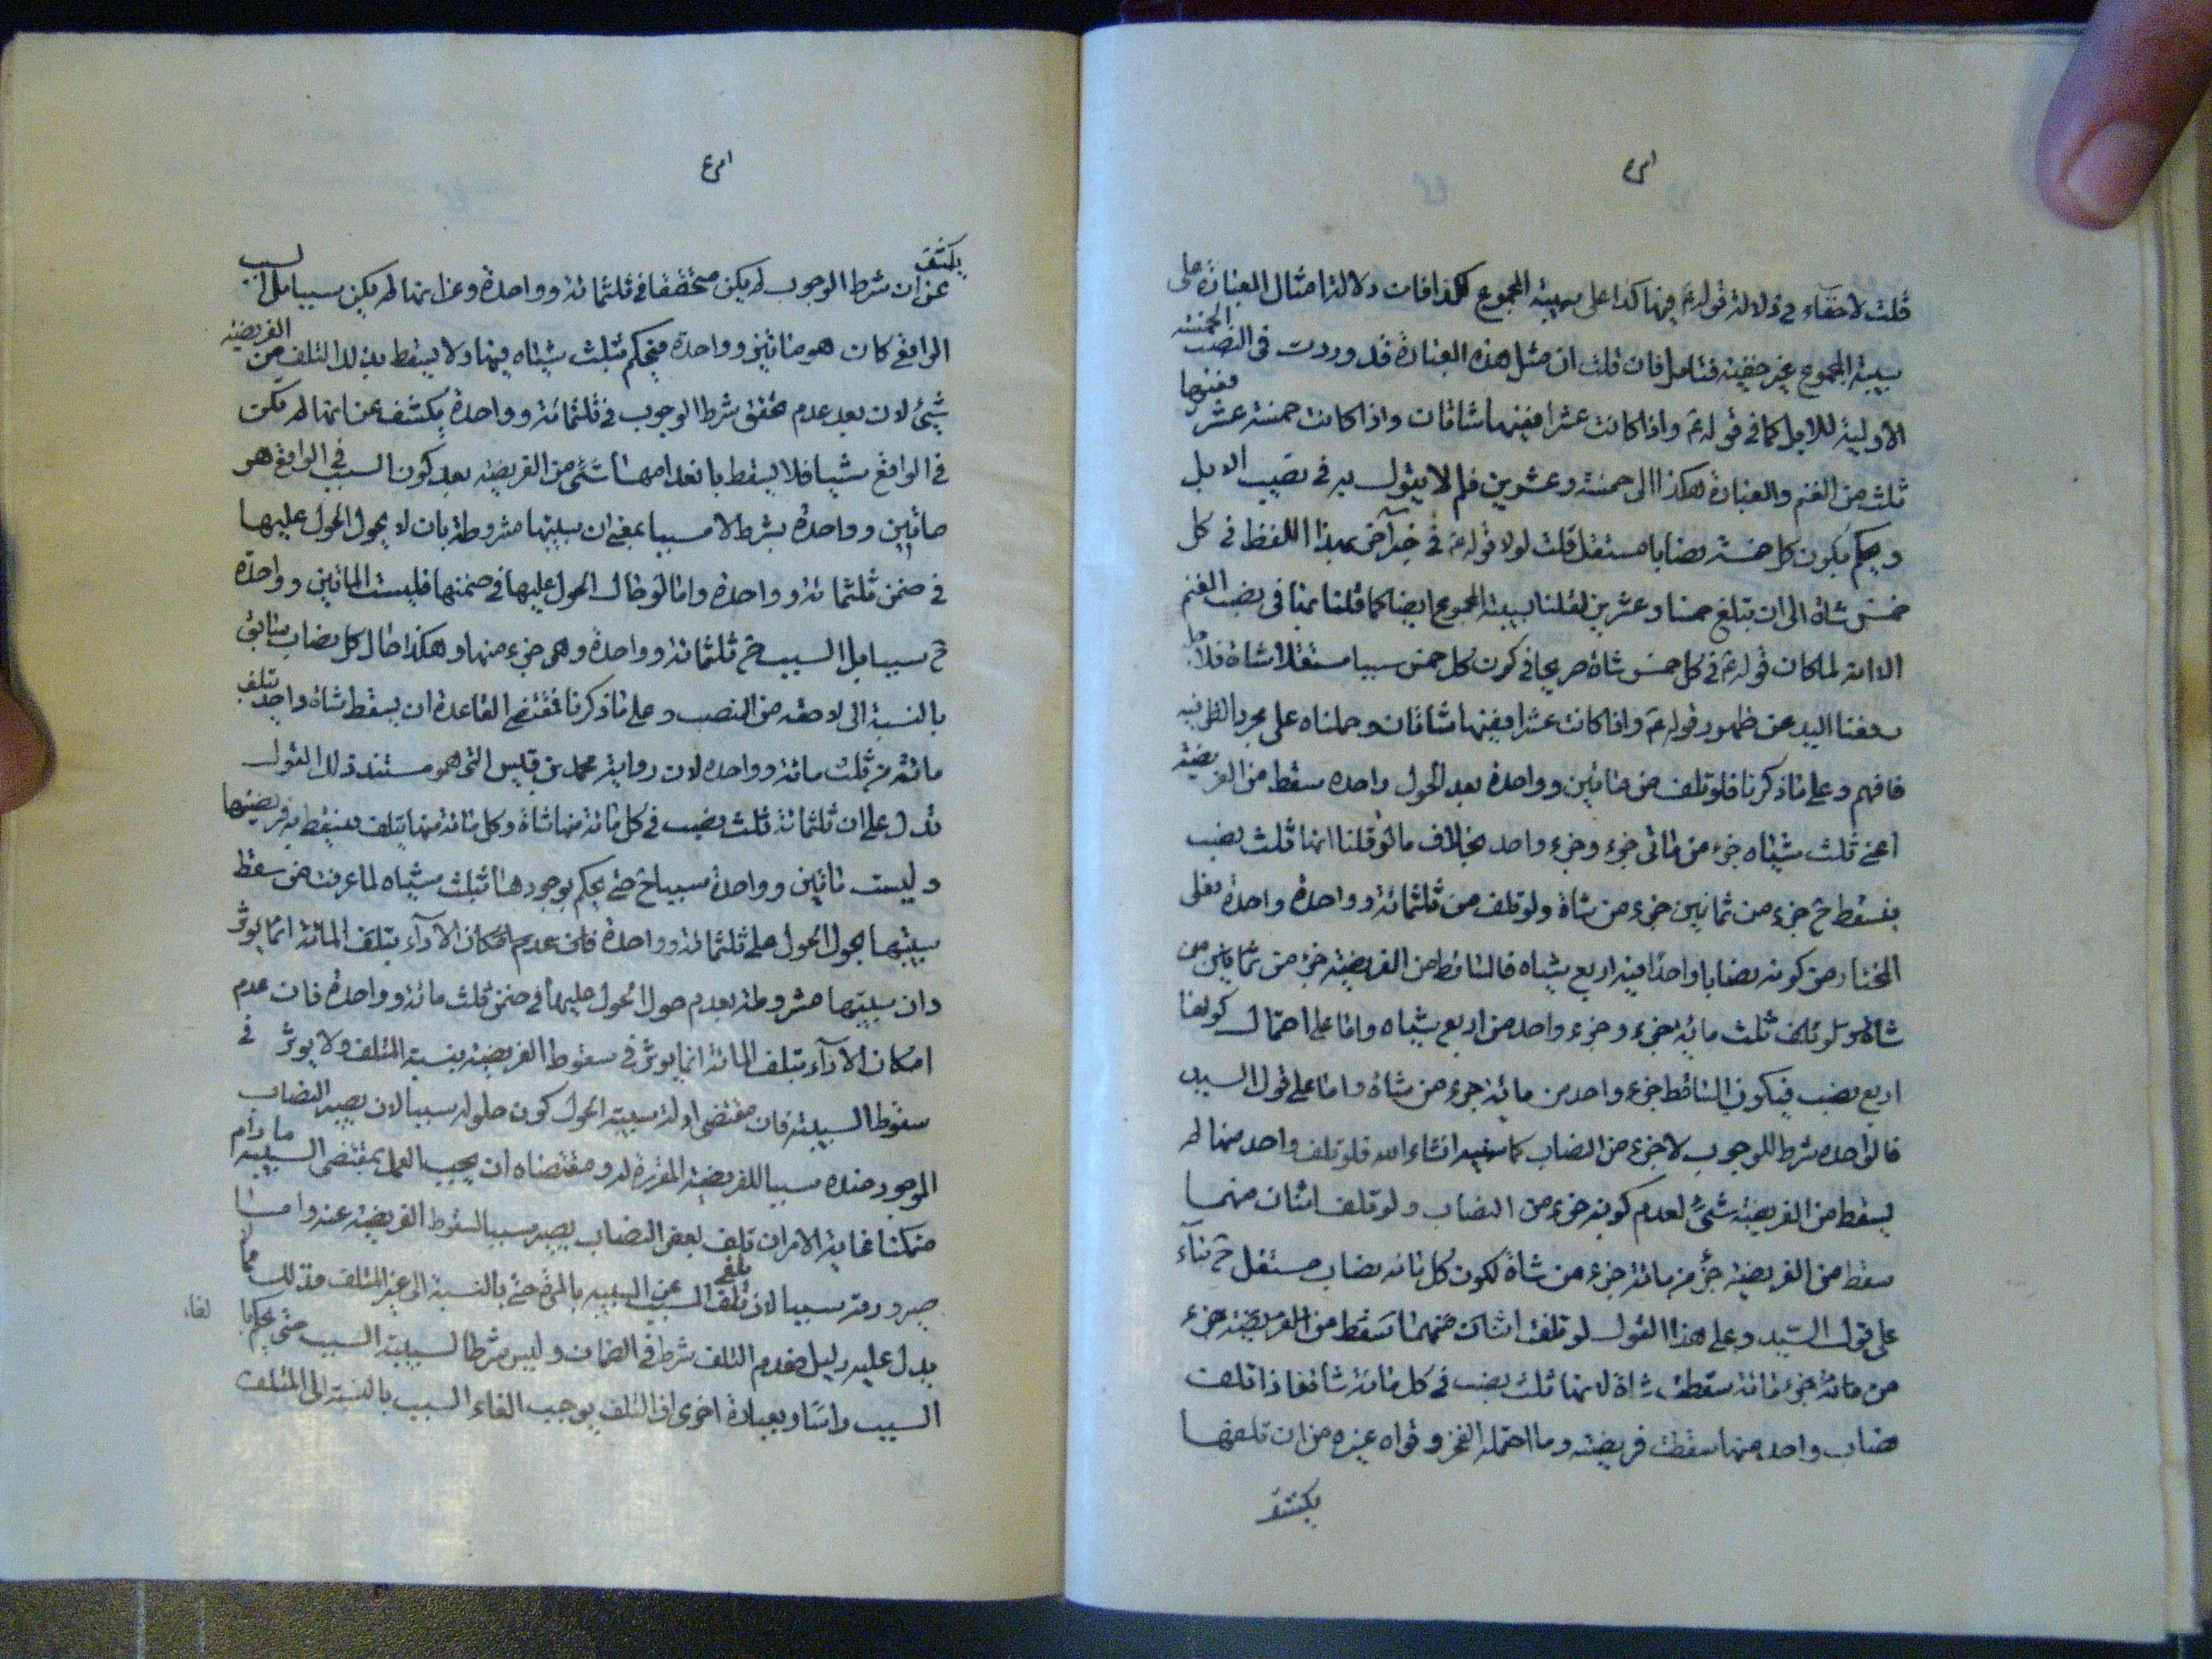 قلت لا خفاء في دلالة قوله ع فيها كذا على سببية المجموع لكذا فان دلالة امثال العبارة على
سببية المجموع غير خفية فتامل فان قلت ان مثل هذه العبارة قد وردت في النصب الخمسة
الاولية للابل كما في قوله ع واذا كانت عشرا ففيها شاتان واذا كانت خمسة عشر ففيها
ثلث من الغنم والعبارة هكذا الى خمسة وعشرين فلم لا يقول به في نصيب الابل
ويحكم بكون كل خمسة نصابا مستقلا قلت لولا قوله ع في خبر آخر بهذا اللفظ في كل
خمس شاة الى ان تبلغ خمسا وعشرين لقلنا بسببية المجموع ايضا كما قلنا بها في نصب الغنم
الا انه لما كان قوله ع في كل خمس شاة صريحا في كون كل خمس سببا مستقلا لشاة فلاجل
رفعنا اليد عن ظهور قوله ع واذا كانت عشرا ففيها شاتان وحملناه على مجرد الظرفية
فافهم وعلى ما ذكرنا فلو تلف من مائتين وواحدة بعد الحول واحدة سقط من الفريضة
اعني ثلث شياه جزء من مأتي جزء وجزء واحد بخلاف ما لو قلنا انها ثلث نصب
فسقط ح جزء من ثمانين جزء من شاة ولو تلف من ثلثمائة وواحدة واحدة فعلى
المختار من كونه نصابا واحدا فيه اربع شياه فالساقط من الفريضة جزء من ثمانين من
شاة لو تلف ثلث مائة جزء وجزء واحد من اربع شياه واما على احتمال كونها
اربع نصب فيكون الساقط جزء واحد من مائة جزء من شاة واما على قول السيد
فالواحدة شرط للوجوب لا جزء من النصاب كما سيجيء انشاء الله فلو تلف واحد منها لم
يسقط من الفريضة شيء لعدم كونه جزء من النصاب ولو تلف اثنان منها
سقط من الفريضة جزء من مائة جزء من شاة لكون كل مائة نصاب مستقل ح بناء
على قول السيد وعلى هذا القول لو تلف اثنان منها سقط من الفريضة جزء
من مائة جزء مائة سقطت شاة لانها ثلث نصب في كل مائة شاة فاذا تلف
نصاب واحد منها سقطت فريضة وما احتمله الفخر وقواه غيره من ان تلفها
يكشف
يكشف
عن ان شرط الوجوب لم يكن متحققا في ثلثمائة وواحدة وعن انها لم يكن سببا بل السبب
الواقع كان هو مائتين وواحدة فيحكم بثلث شياه فيها ولا يسقط بذلك التلف من الفريضة
شيء لان بعد عدم تحقق شرط الوجوب في ثلثمائة وواحدة يكشف عن انها لم تكن
في الواقع سببا فلا يسقط بانعدامها شيء من الفريضة بعد كون السبب في الواقع هو
مائتين وواحدة بشرط لا سببا بمعنى ان سببيتها مشروطة بان لا يحول الحول عليها
في ضمن ثلثمائة وواحدة واما لو حال الحول عليها في ضمنها فليست المائتين وواحدة
ح سببا بل السبب ح ثلثمائة وواحدة وهي جزء منها وهكذا حال كل نصاب سابق
بالنسبة الى لاحقه من النصب وعلى ما ذكرنا فمقتضى القاعدة ان يسقط شاة واحد بتلف
مائة من ثلث مائة وواحدة لان رواية محمد بن قيس التي هو مستند ذلك القول
تدل على ان ثلثمائة ثلث نصب في كل مائة منها شاة وكل مائة منها يتلف يسقط به فريضتها
وليست مائتين وواحدة سببا ح حتى يحكم بوجودها بثلث شياه لما عرفت من سقط
سببيتها بحول الحول على ثلثمائة وواحدة فان عدم امكان الاداء بتلف المائة انما يوثر
وان سببيتها مشروطة بعدم حول الحول عليها في ضمن ثلث مائة وواحدة فان عدم
امكان الاداء بتلف المائة انما يوثر في سقوط الفريضة بنسبة التلف ولا يوثر في
سقوط السببية فان مقتضى ادلة سببية الحول كون حلوله سببا لان يصير النصاب
الموجود عنده سببا للفريضة المقررة له ومقتضاه ان يجب العمل بمقتضى السببية ما دام
متمكنا غاية الامر ان تلف بعض النصاب يصير سببا لسقوط الفريضة عنه واما
صيرورته سببا لان يلغى السبب عن السببية بالمرة حتى بالنسبة الى غير المتلف فذلك مما لا
يدل عليه دليل فعدم التلف شرط في الضمان وليس شرطا لسببية السبب حتى يحكم بالغاء
السبب راسا وبعبارة اخرى ان التلف يوجب الغاء السبب بالنسبة الى المتلف